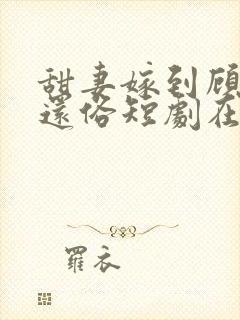 甜妻嫁到顾
还俗短劇在
羅衣